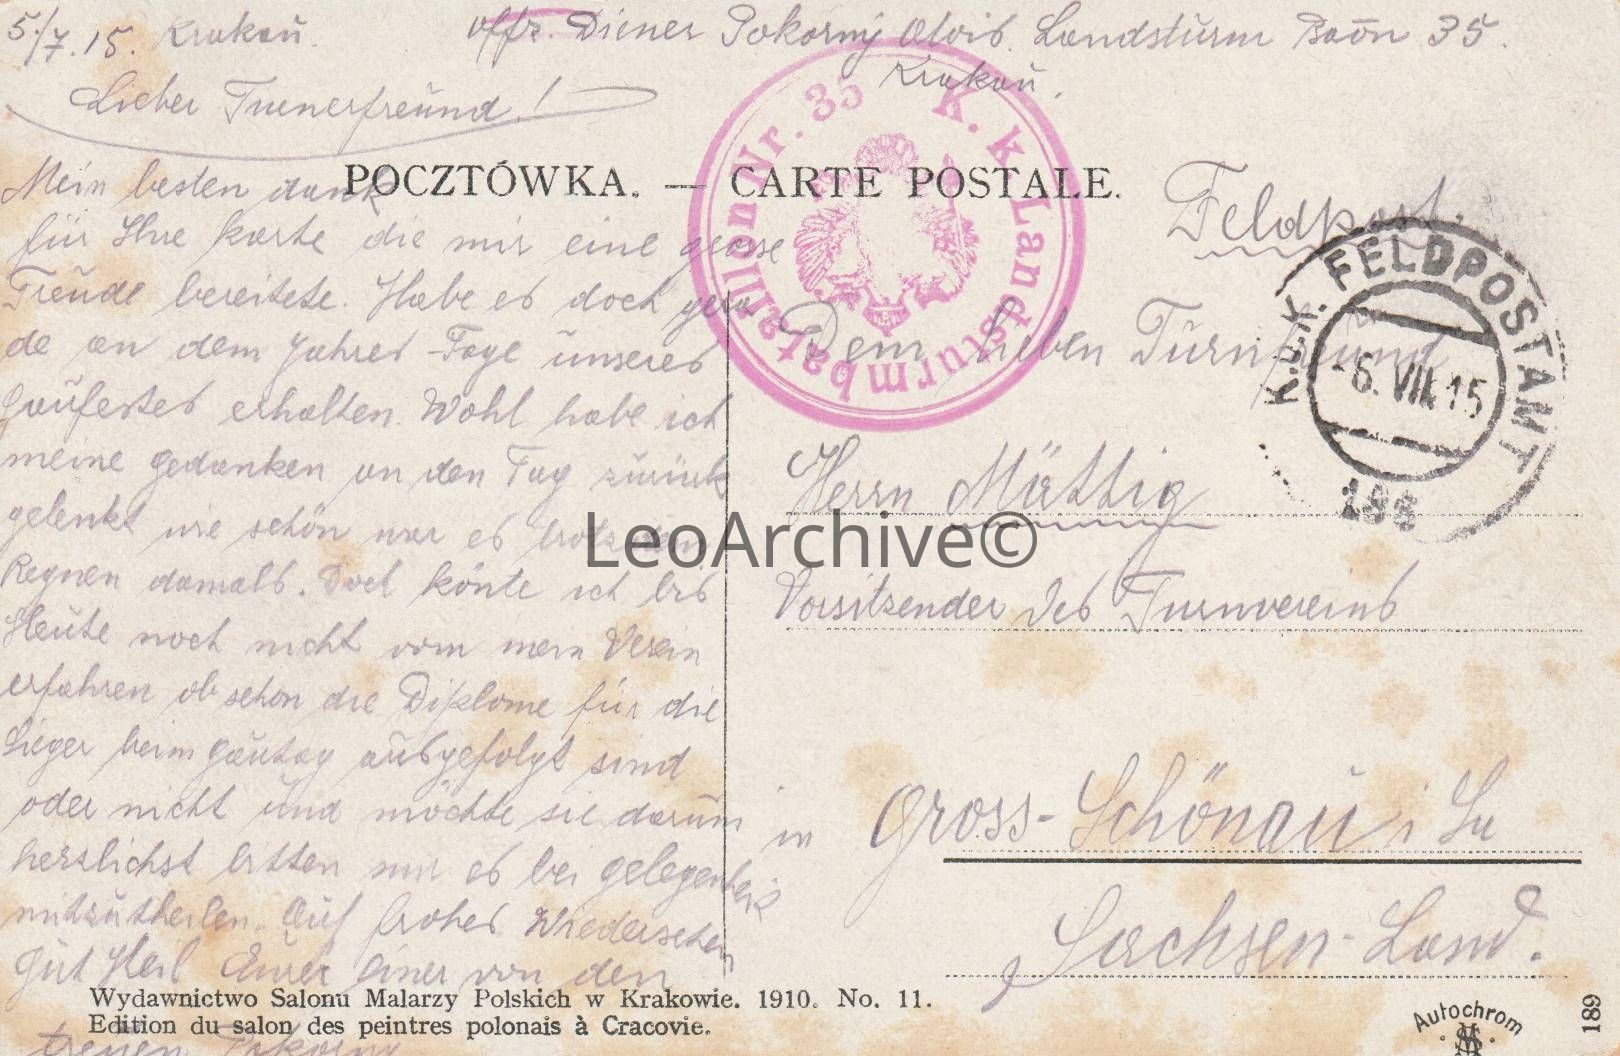 5./7.15. Krakau.
Offz. Diener Pokorný Alois. Landsturm Baōn 35.
Krakau.
Lieber Turnerfreund!
Mein besten dank
für Ihre karte die mir eine grosse
Freude bereitete. Habe es doch gera
de an dem Jahres-Tage unseres
Gaufestes erhalten. Wohl habe ich
meine gedanken an den Tag zurück
gelenkt wie schön war es trotz dem
Regnen damals. Doch könte ich bis
Heute noch nicht vom mein Verein
erfahren ob schon die Diplome für die
Sieger beim Gautag ausgefolgt sind
oder nicht und möchte sie darum
herzlichst bitten mir es bei gelegenheit
mitzutheilen. Auf frohes Wiedersehen
Gut Heil Eurer einer von den
treuen Pokorny
POCZTÓWKA. — CARTE POSTALE.
K. k. Landsturmbataillon Nr. 35
Feldpost.
K.u.K. FELDPOSTAMT
-6. VII. 15
186
Dem lieben Turnfreund
Herrn Mättig
Vorsitzender des Turnvereins
in Gross-Schönau i Sa
Sachsen-Land.
LeoArchive©
Wydawnictwo Salonu Malarzy Polskich w Krakowie. 1910. No. 11.
Edition du salon des peintres polonais à Cracovie.
Autochrom
189